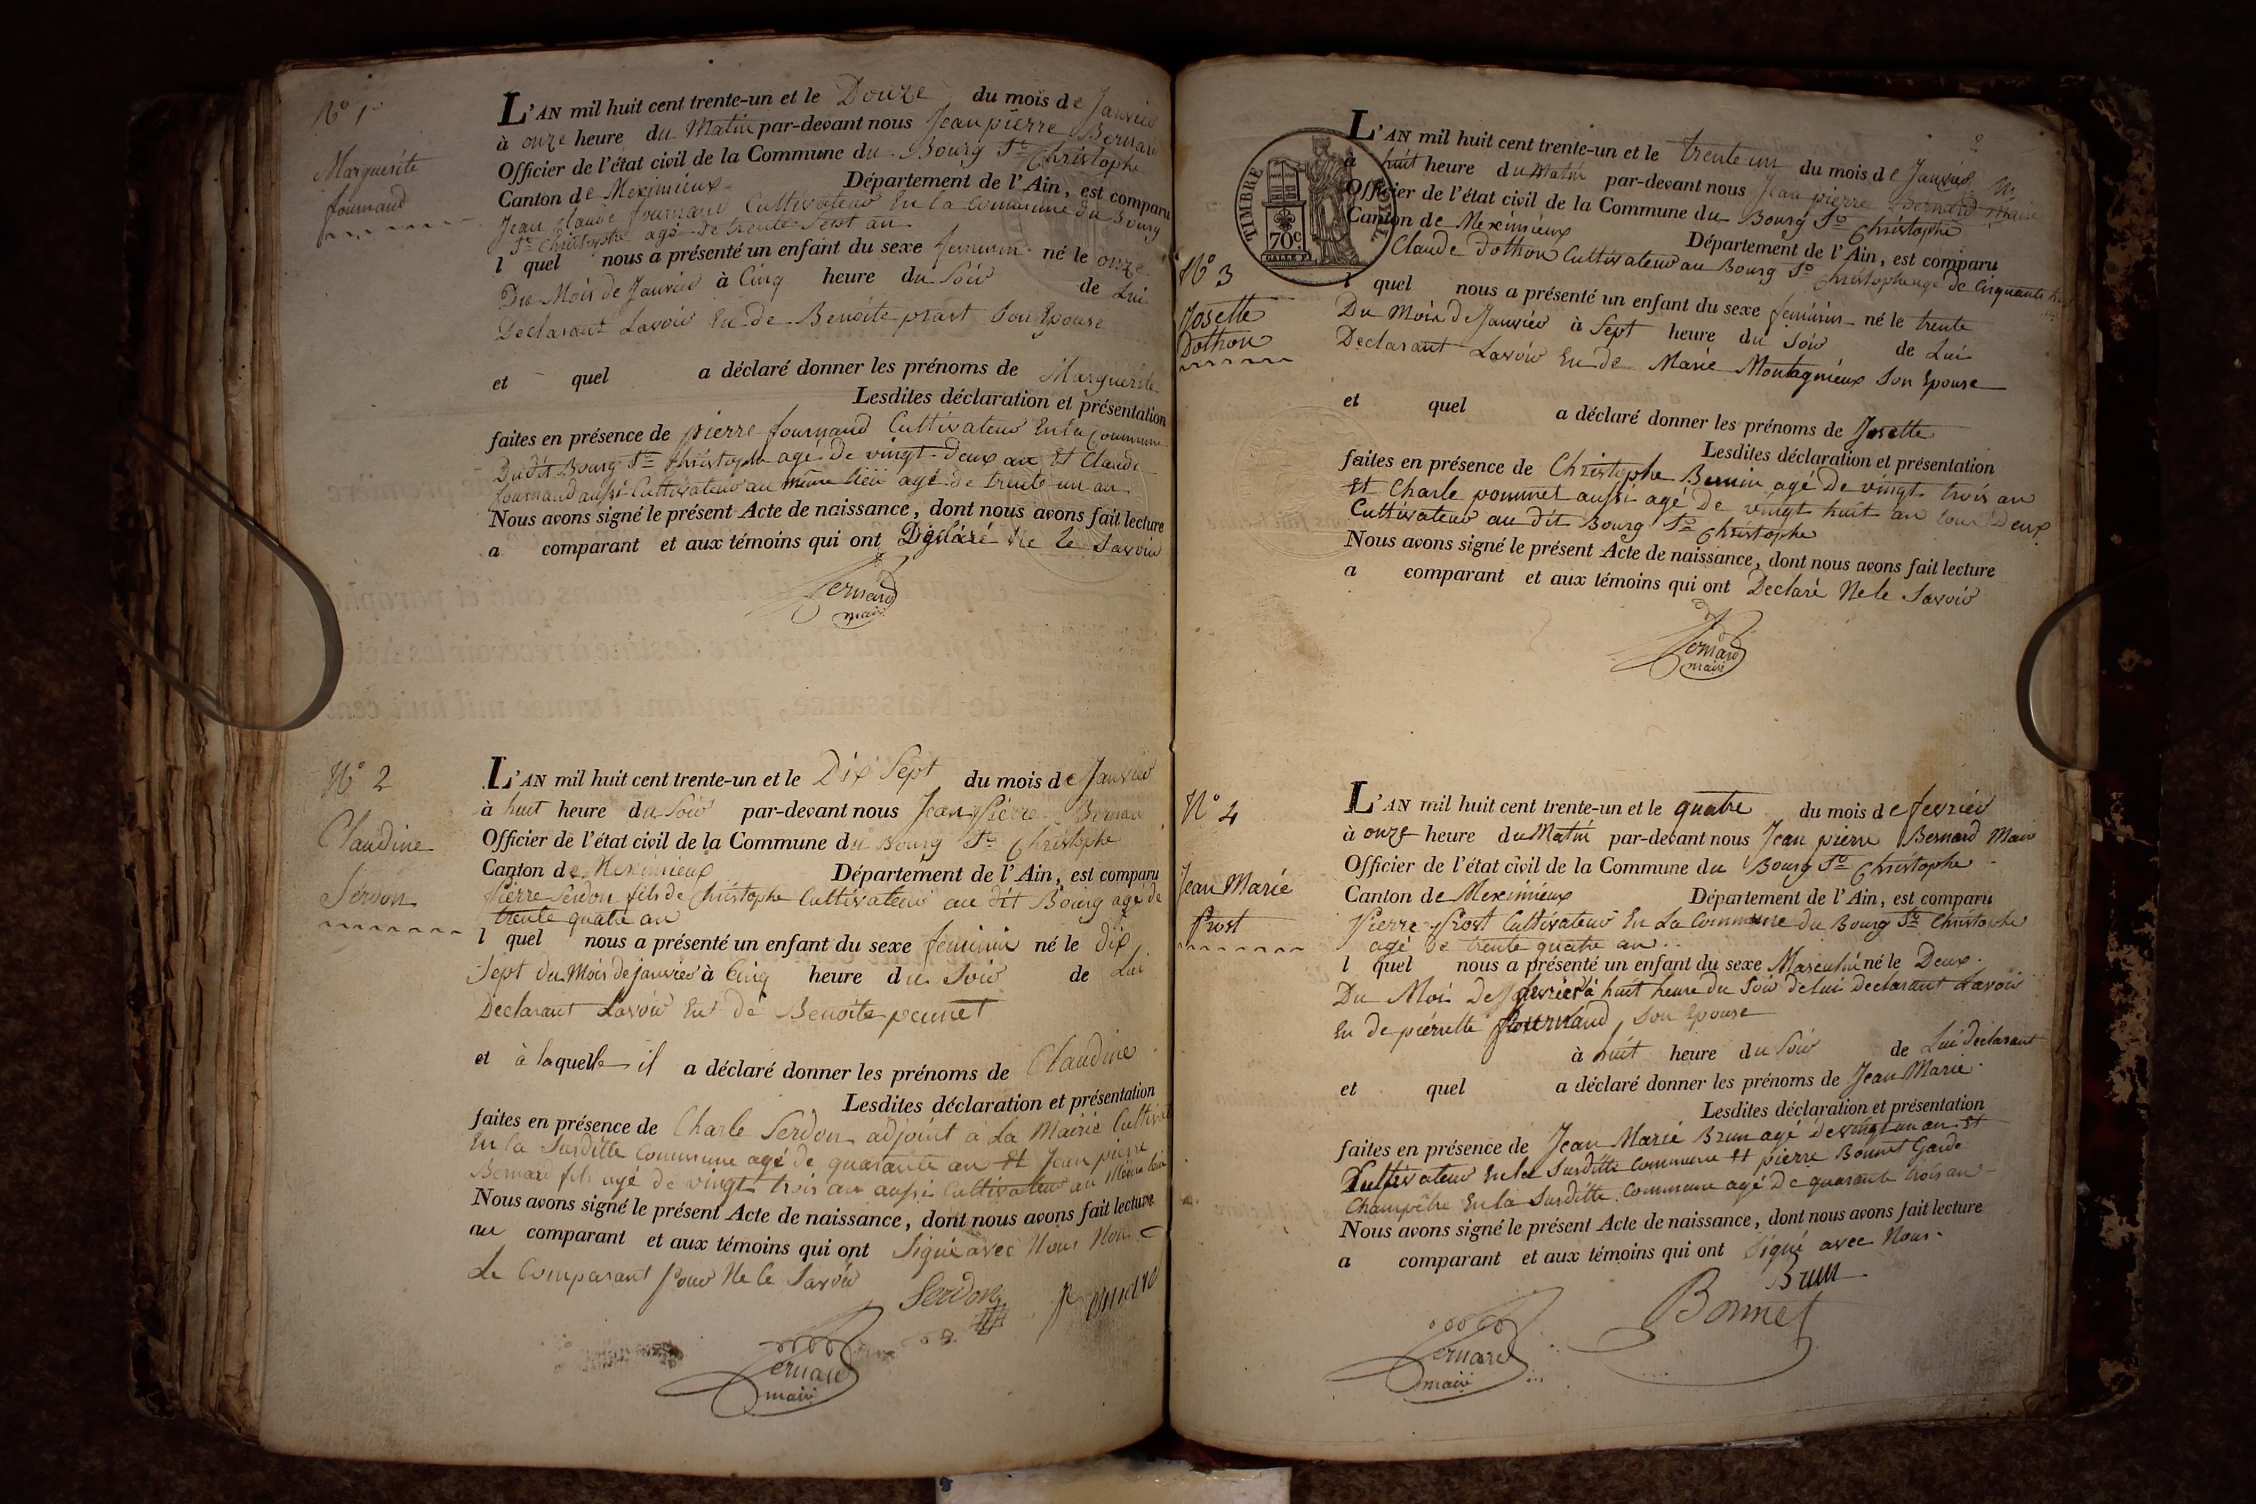 N° 1er
Marguerite
fournand
L'AN mil huit cent trente-un et le Douze du mois de Janvier
à onze heure du Matin par-devant nous Jean pierre Bernard
Officier de l'état civil de la Commune du Bourg St Christophe
Canton de Meximieux Département de l'Ain, est comparu
Jean Claude fournand Cultivateur En La Commune du Bourg
St Christophe agé de trente Sept an
l quel nous a présenté un enfant du sexe feminin né le onze
Du Mois de Janvier à Cinq heure du Soir de Lui
Declarant Lavoir Eu de Benoite prast Son Epouse
et quel a déclaré donner les prénoms de Marguerite
Lesdites déclaration et présentation
faites en présence de pierre fournand Cultivateur En la Commune
Dudit Bourg St Christophe agé de vingt Deux an Et Claude
fournand aussi Cultivateur au même lieu agé de trente un an
Nous avons signé le présent Acte de naissance, dont nous avons fait lecture
a comparant et aux témoins qui ont Déclaré Ne le Savoir
Bernard
maire
N° 2
Claudine
Serdon
L'AN mil huit cent trente-un et le Dix Sept du mois de Janvier
à huit heure du Soir par-devant nous Jean Pierre Bernard
Officier de l'état civil de la Commune du Bourg St Christophe
Canton de Meximieux Département de l'Ain, est comparu
Pierre Serdon fils de Christophe Cultivateur au dit Bourg agé de
trente quatre an
l quel nous a présenté un enfant du sexe feminin né le dix
Sept du Mois de janvier à Cinq heure du Soir de Lui
Declarant Lavoir Eu de Benoite peunet
et à laquelle il a déclaré donner les prénoms de Claudine
Lesdites déclaration et présentation
faites en présence de Charle Serdon adjoint à La Mairie Cultiv
En la Susditte Commune agé de quarante an Et Jean pierre
Bernard fils agé de vingt trois an aussi Cultivateur au Même lieu
Nous avons signé le présent Acte de naissance, dont nous avons fait lecture
au comparant et aux témoins qui ont Signé avec Nous Non
Le Comparant pour Ne le Savoir
Serdon Bernard
Bernard
maire
TIMBRE ROYAL
70c
N° 3
Josette
Dothon
L'AN mil huit cent trente-un et le trente un du mois de Janvier
à huit heure du Matin par-devant nous Jean pierre Bernard Maire
Officier de l'état civil de la Commune du Bourg St Christophe
Canton de Meximieux Département de l'Ain, est comparu
Claude Dothon Cultivateur au Bourg St Christophe agé de Cinquante
l quel nous a présenté un enfant du sexe feminin né le trente
Du Mois de Janvier à Sept heure du Soir de Lui
Declarant Lavoir Eu de Marie Montagnieux Son Epouse
et quel a déclaré donner les prénoms de Josette
Lesdites déclaration et présentation
faites en présence de Christophe Bernin agé de vingt trois an
Et Charle pommet aussi agé de vingt huit an tous Deux
Cultivateur au dit Bourg St Christophe
Nous avons signé le présent Acte de naissance, dont nous avons fait lecture
a comparant et aux témoins qui ont Declaré Ne le Savoir
Bernard
maire
N° 4
Jean Marie
Prost
L'AN mil huit cent trente-un et le quatre du mois de fevrier
à onze heure du Matin par-devant nous Jean pierre Bernard Maire
Officier de l'état civil de la Commune du Bourg St Christophe
Canton de Meximieux Département de l'Ain, est comparu
Pierre Prost Cultivateur En La Commune du Bourg St Christophe
agé de trente quatre an
l quel nous a présenté un enfant du sexe Masculin né le Deux
Du Moi De fevrier à huit heure du Soir de lui Declarant Lavoir
Eu de pierrette fournand, Son Epouse
à huit heure du Soir de Lui Declarant
et quel a déclaré donner les prénoms de Jean Marie
Lesdites déclaration et présentation
faites en présence de Jean Marie Brun agé de vingt un an Et
Cultivateur En la Susditte Commune Et pierre Bonnet Garde
Champêtre En la Susditte Commune agé De quarante trois an
Nous avons signé le présent Acte de naissance, dont nous avons fait lecture
a comparant et aux témoins qui ont Signé avec Nous
Brun
Bonnet
Bernard
maire